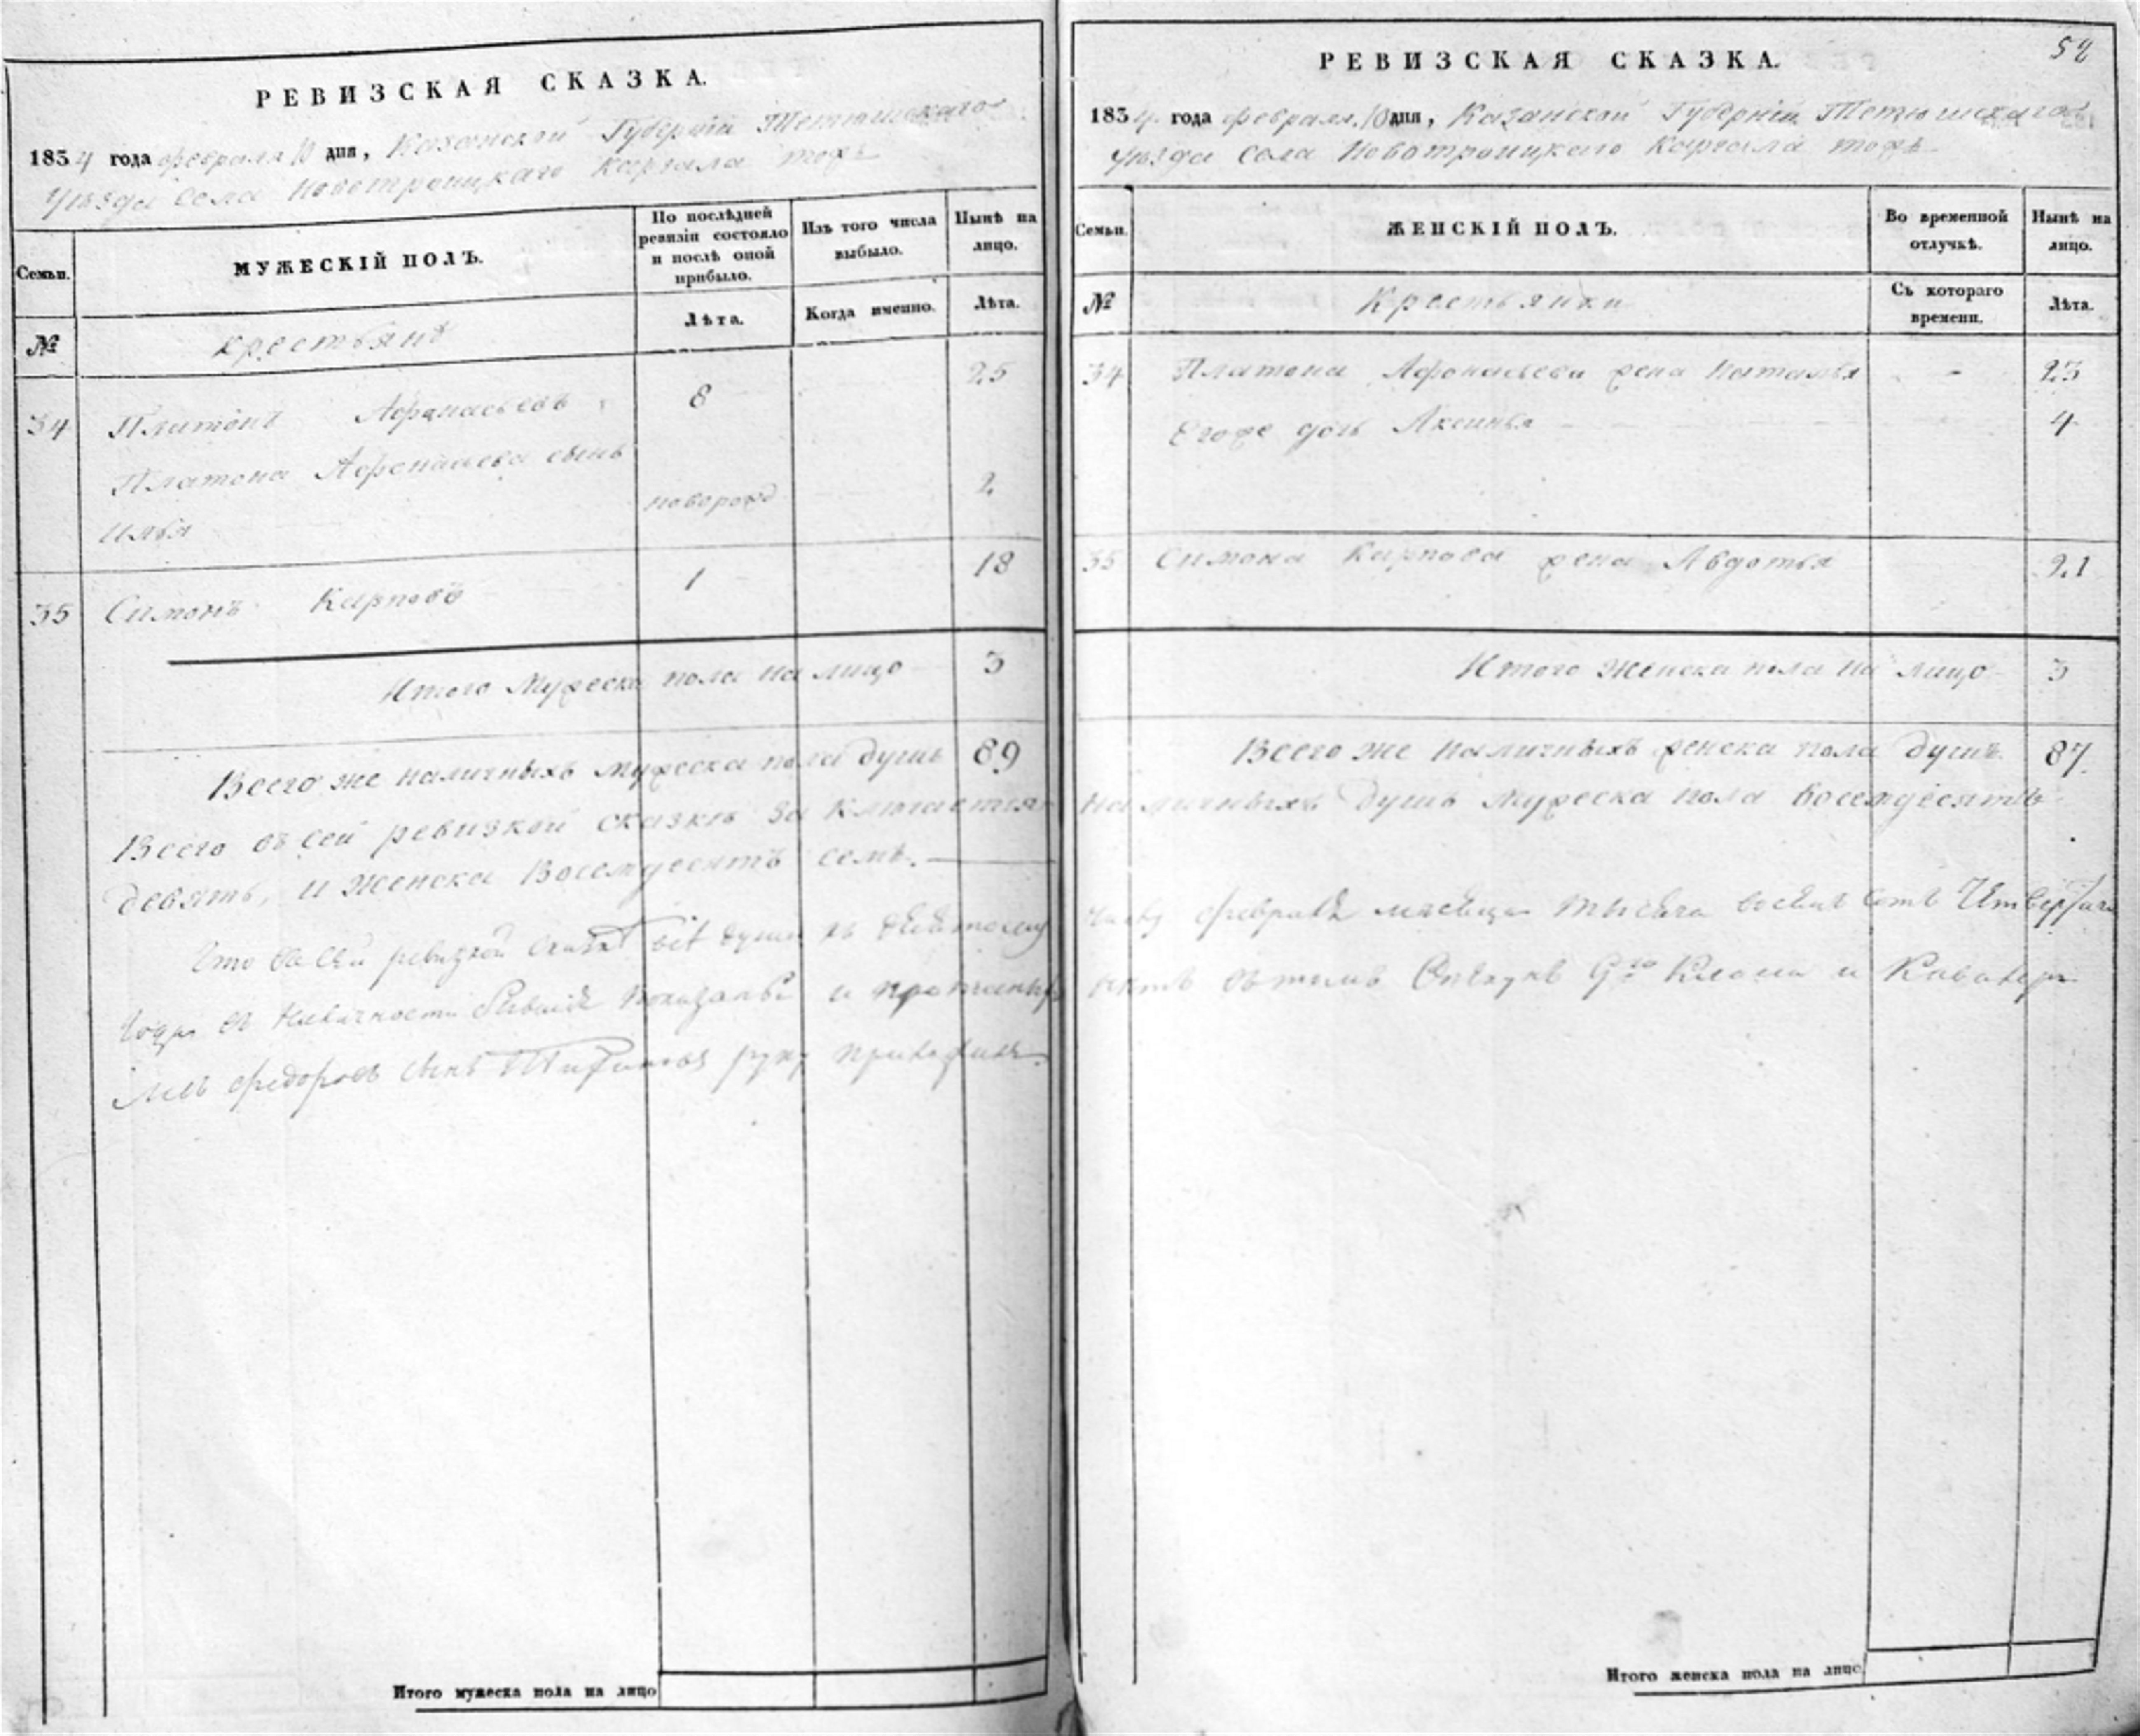 РЕВИЗСКАЯ СКАЗКА.
1834 года февраля 10 дня, Казанской Губерніи Тетюшскаго
уѣзда села Новотроицкаго Каргала тожъ
Семьи.
МУЖЕСКІЙ ПОЛЪ.
По послѣдней ревизіи состояло и послѣ оной прибыло.
Изъ того числа выбыло.
Нынѣ на лицо.
№
Крестьянѣ
Лѣта.
Когда именно.
Лѣта.
34 Платонъ Афонасьевъ 8 25
Платона Афонасьева сынъ
Илья новорожд 2
35 Симонъ Карповъ 1 18
Итого Мужеска пола на лицо 3
Всего же наличныхъ мужеска пола душъ 89
Всего въ сей ревизкой сказкѣ заключается
девять, и женска Восемдесятъ семь.
Что въ сей ревизкой сказкѣ всѣ души къ
года въ наличности показаны и
федоровъ сынъ руку приложилъ
РЕВИЗСКАЯ СКАЗКА.
52
1834 года февраля 10 дня, Казанской Губерніи Тетюшскаго
уѣзда села Новотроицкаго Каргала тожъ
Семьи.
ЖЕНСКІЙ ПОЛЪ.
Во временной отлучкѣ.
Нынѣ на лицо.
№
Крестьянки
Съ котораго времени.
Лѣта.
34 Платона Афонасьева жена Наталья - 23
Егоже дочь Аксинья 4
35 Симона Карпова жена Авдотья 21
Итого Женска пола на лицо 3
Всего же наличныхъ женска пола душъ 87.
наличныхъ душъ мужеска пола восемдесятъ
числу февраля месяца тысяча восемь сотъ
въ томъ 9го Класса и Кавалеръ
Итого мужеска пола на лицо
Итого женска пола на лицо